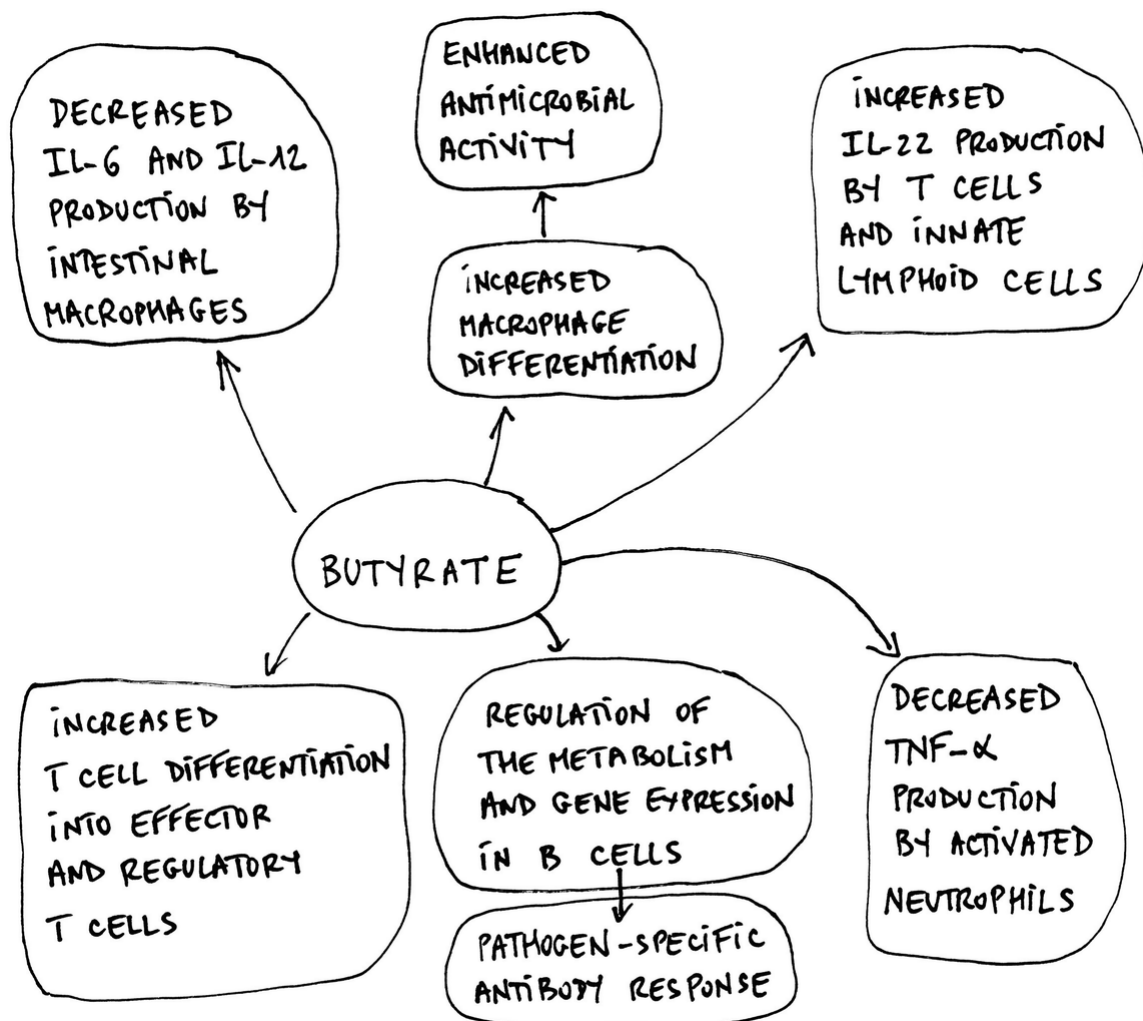 DECREASED
IL-6 AND IL-12
PRODUCTION BY
INTESTINAL
MACROPHAGES
ENHANCED
ANTIMICROBIAL
ACTIVITY
INCREASED
MACROPHAGE
DIFFERENTIATION
INCREASED
IL-22 PRODUCTION
BY T CELLS
AND INNATE
LYMPHOID CELLS
BUTYRATE
INCREASED
T CELL DIFFERENTIATION
INTO EFFECTOR
AND REGULATORY
T CELLS
REGULATION OF
THE METABOLISM
AND GENE EXPRESSION
IN B CELLS
PATHOGEN-SPECIFIC
ANTIBODY RESPONSE
DECREASED
TNF-α
PRODUCTION
BY ACTIVATED
NEUTROPHILS